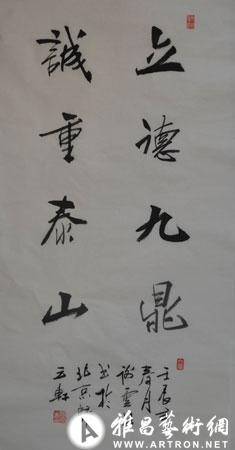 立德九鼎
誠重泰山
壬辰
春月
书於
北京
雅昌藝術網
WWW.ARTRON.NET